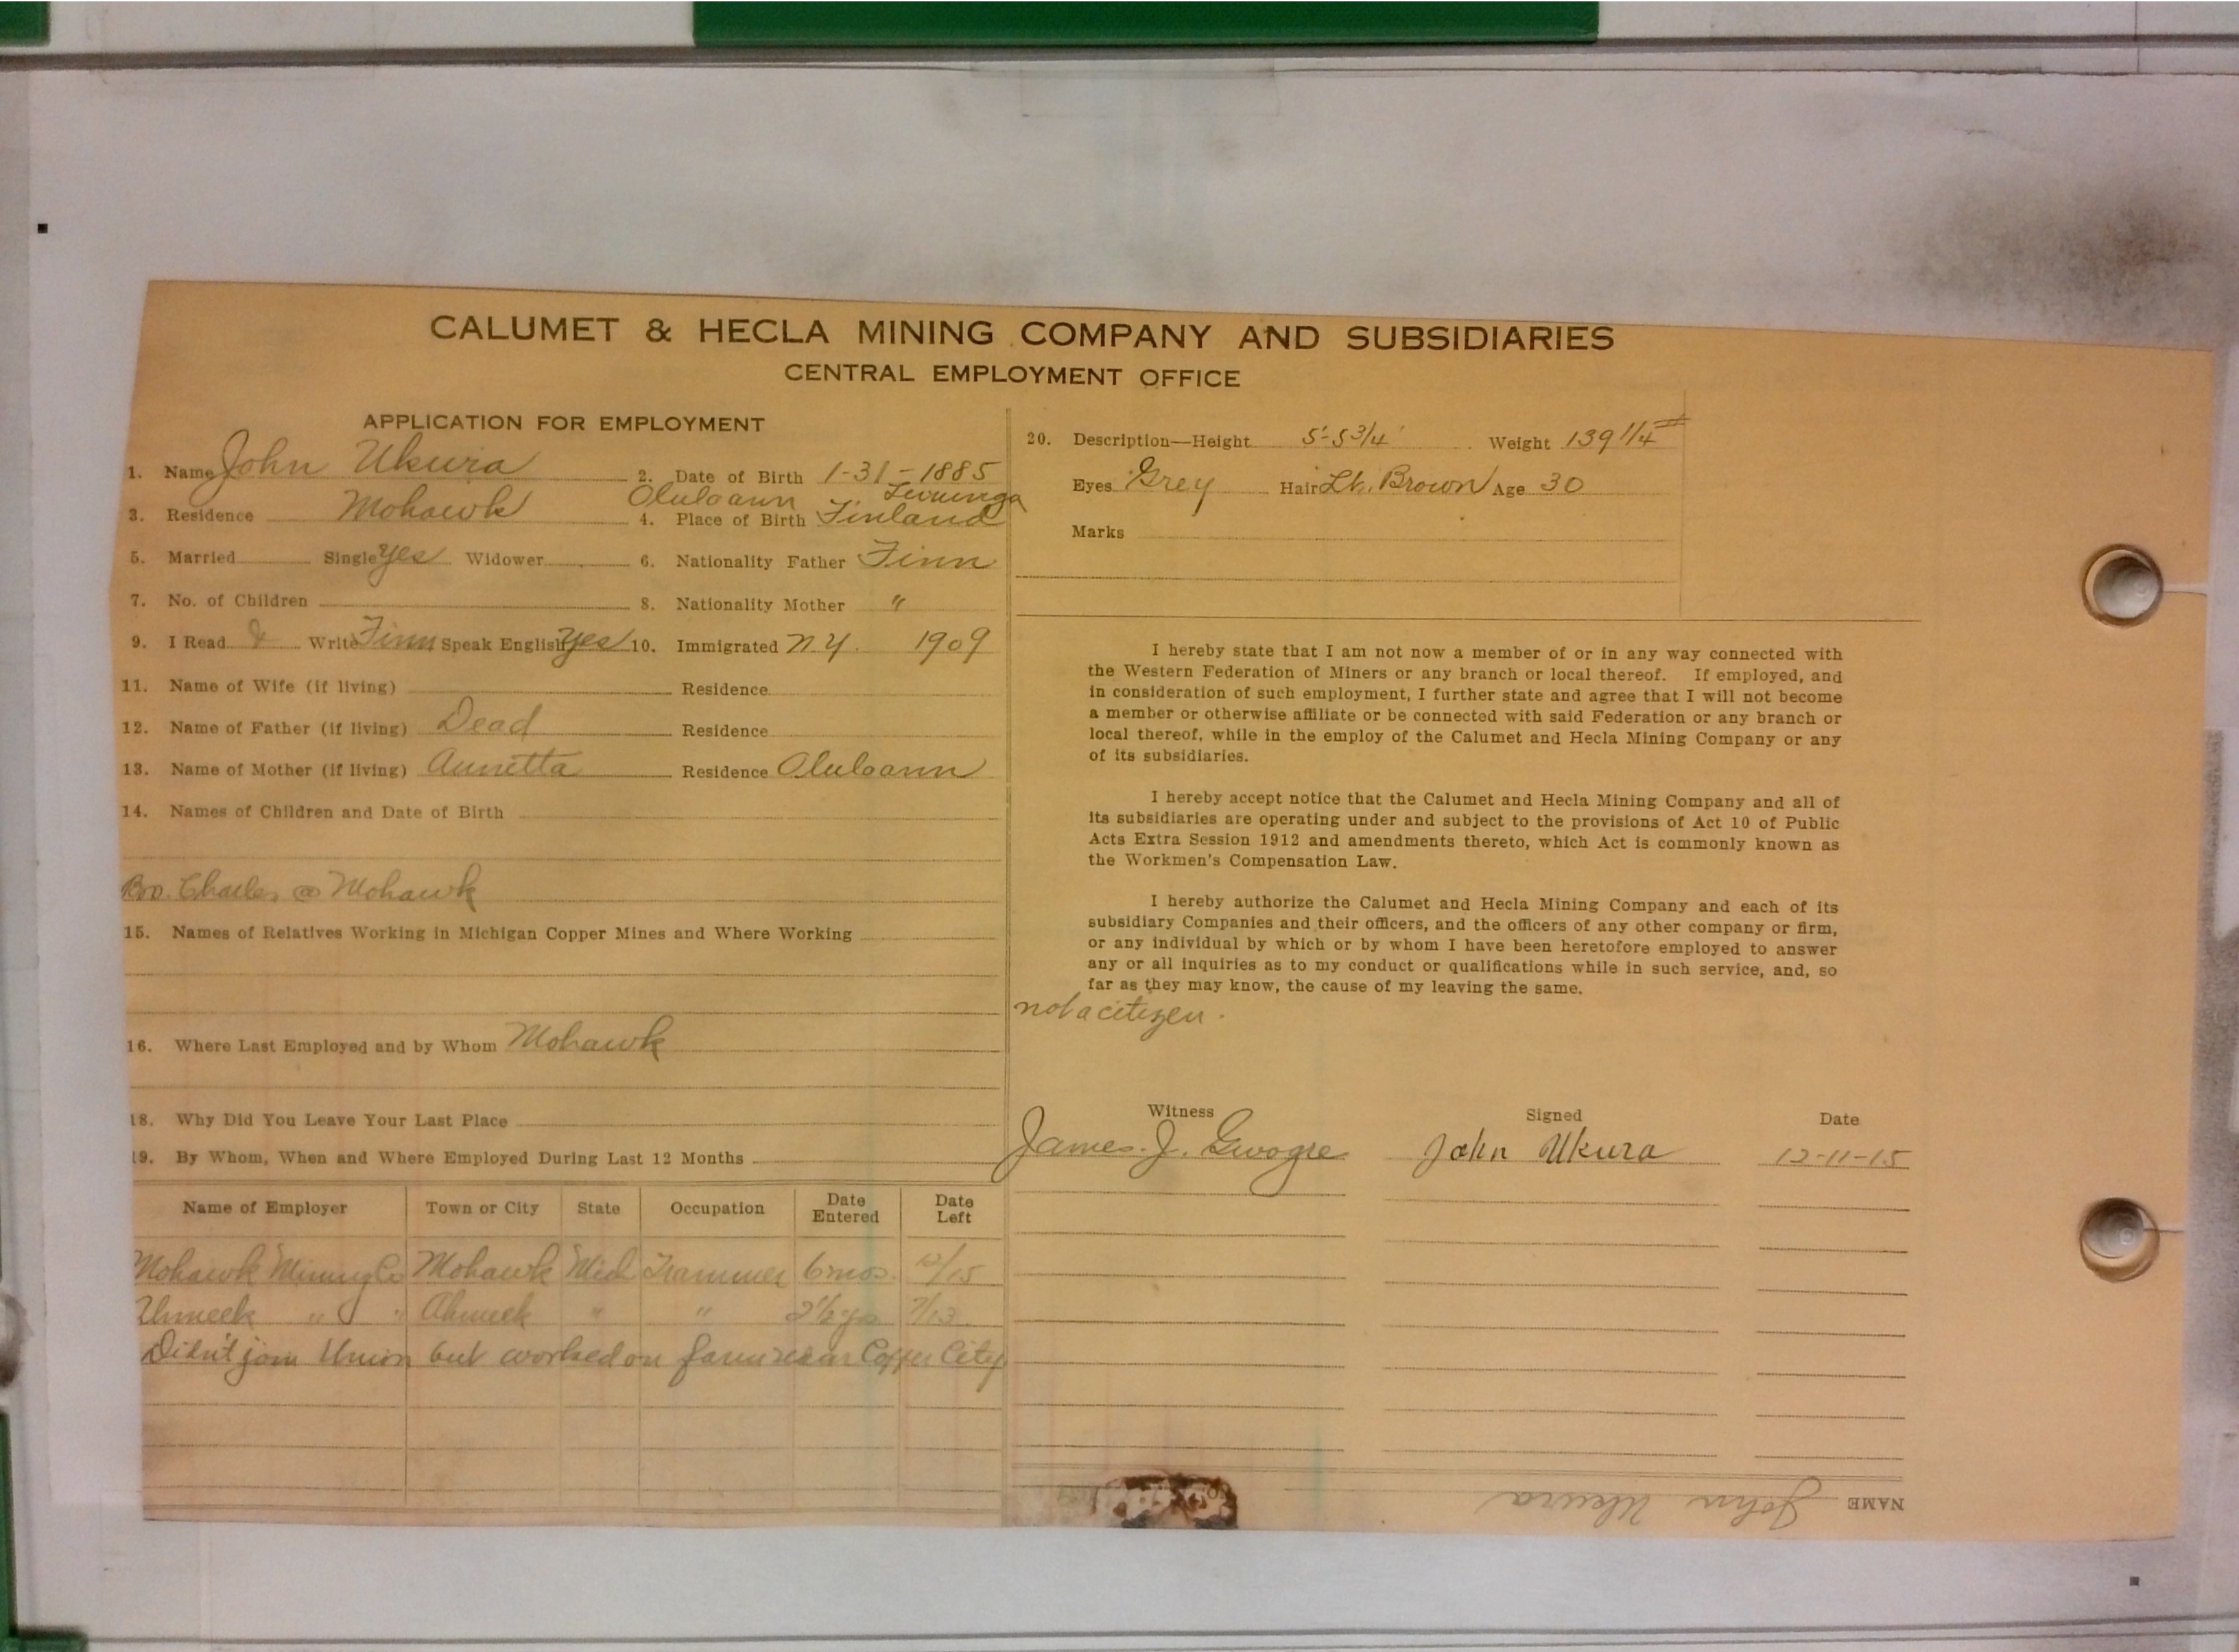 CALUMET & HECLA MINING COMPANY AND SUBSIDIARIES
CENTRAL EMPLOYMENT OFFICE
APPLICATION FOR EMPLOYMENT
1. Name John Ukura 2. Date of Birth 1-31-1885
3. Residence Mohawk 4. Place of Birth Finland
5. Married Single yes Widower 6. Nationality Father Finn
7. No. of Children 8. Nationality Mother "
9. I Read & Write Finn Speak English yes 10. Immigrated N.Y. 1909
11. Name of Wife (if living) Residence
12. Name of Father (if living) Dead Residence
13. Name of Mother (if living) Annetta Residence
14. Names of Children and Date of Birth
Bro. Charles @ Mohawk
15. Names of Relatives Working in Michigan Copper Mines and Where Working
16. Where Last Employed and by Whom Mohawk
18. Why Did You Leave Your Last Place
19. By Whom, When and Where Employed During Last 12 Months
Name of Employer Town or City State Occupation Date Entered Date Left
Mohawk Mining Co Mohawk Mich Trammer 6 mos. 12/15
" " Ahmeek " " 2 1/2 yrs 7/13
Didn't join Union but worked on farm near Copper City
20. Description—Height 5'-5 3/4' Weight 139 1/4 #
Eyes Grey Hair Lt. Brown Age 30
Marks
I hereby state that I am not now a member of or in any way connected with
the Western Federation of Miners or any branch or local thereof. If employed, and
in consideration of such employment, I further state and agree that I will not become
a member or otherwise affiliate or be connected with said Federation or any branch or
local thereof, while in the employ of the Calumet and Hecla Mining Company or any
of its subsidiaries.
I hereby accept notice that the Calumet and Hecla Mining Company and all of
its subsidiaries are operating under and subject to the provisions of Act 10 of Public
Acts Extra Session 1912 and amendments thereto, which Act is commonly known as
the Workmen's Compensation Law.
I hereby authorize the Calumet and Hecla Mining Company and each of its
subsidiary Companies and their officers, and the officers of any other company or firm,
or any individual by which or by whom I have been heretofore employed to answer
any or all inquiries as to my conduct or qualifications while in such service, and, so
far as they may know, the cause of my leaving the same.
not a citizen.
Witness Signed Date
James. J. John Ukura 12-11-15
NAME John Ukura